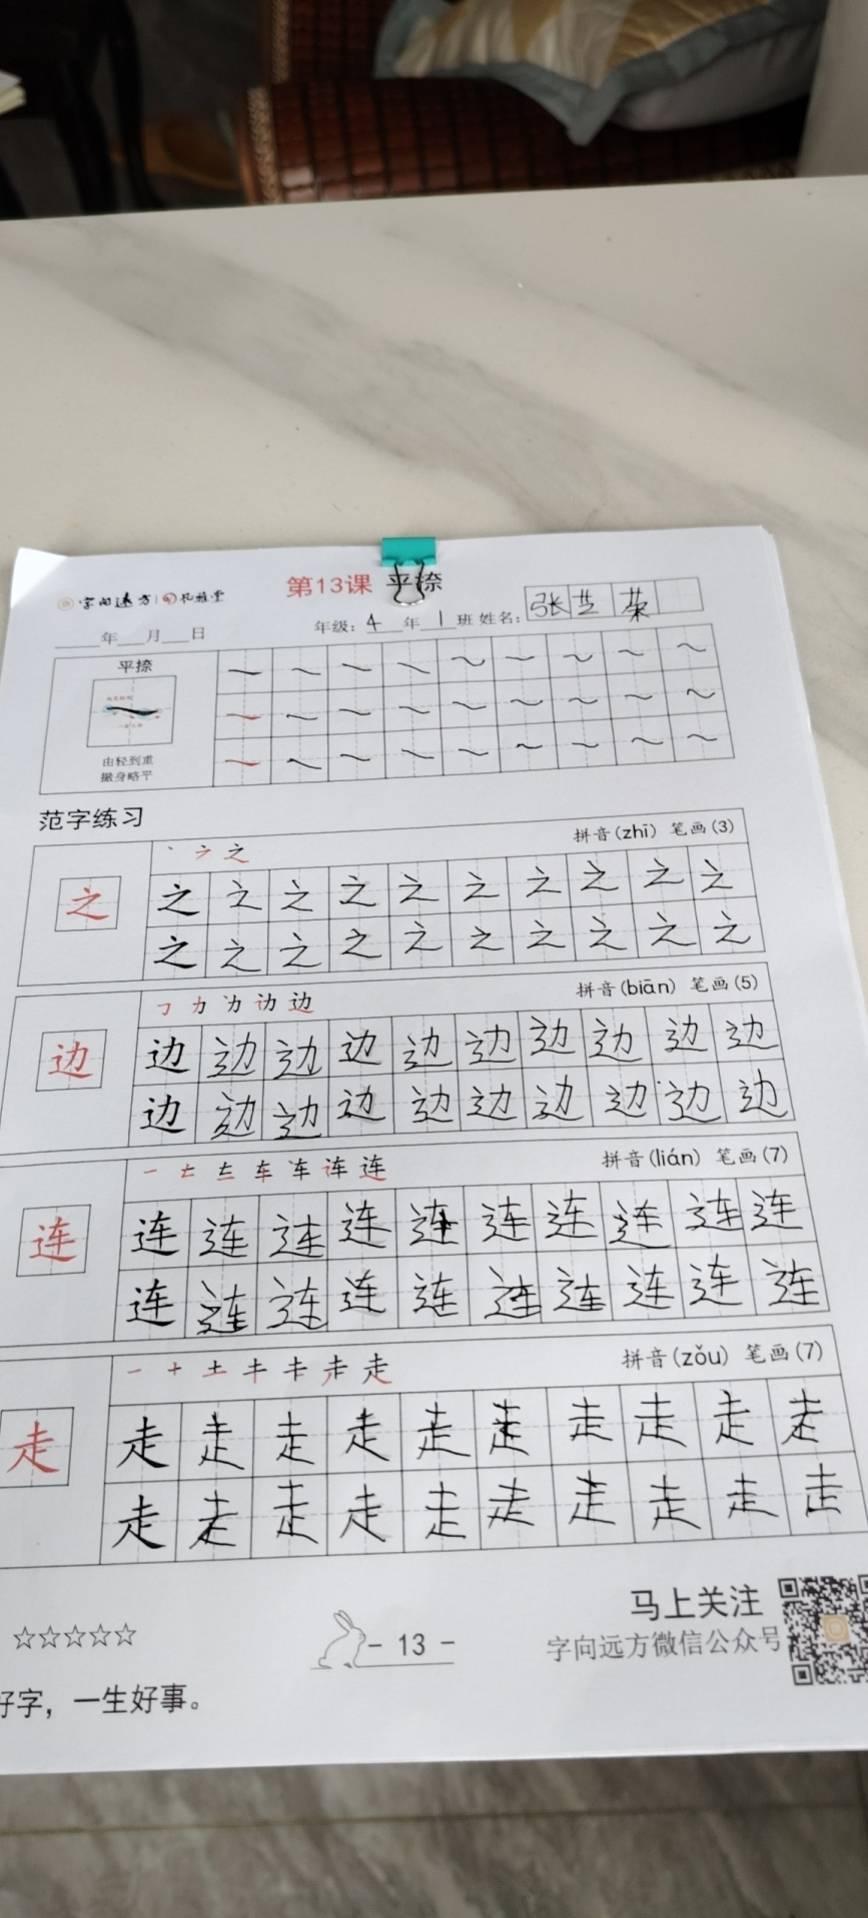 字向远方 | 孔雅堂
第13课 平捺
___年___月___日 年级：4年1班 姓名：张芝荣
平捺
由轻到重
撇身略平
范字练习
丶 ㇇ 之 拼音(zhī) 笔画(3)
之 之 之 之 之 之 之 之 之 之 之
之 之 之 之 之 之 之 之 之 之
㇆ 力 边 拼音(biān) 笔画(5)
边 边 边 边 边 边 边 边 边 边 边
边 边 边 边 边 边 边 边 边 边
一 车 连 连 拼音(lián) 笔画(7)
连 连 连 连 连 连 连 连 连 连 连
连 连 连 连 连 连 连 连 连 连
一 十 土 走 拼音(zǒu) 笔画(7)
走 走 走 走 走 走 走 走 走 走 走
走 走 走 走 走 走 走 走 走 走
马上关注
☆☆☆☆☆ - 13 - 字向远方微信公众号
好字，一生好事。